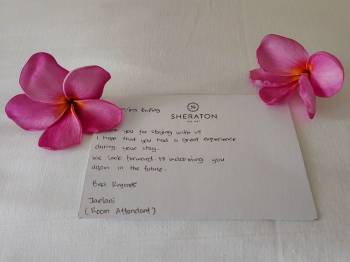 SHERATON
you for staying with us
I hope that you had a great experience
during your stay.
We look forward to welcoming you
again in the future.
Best Regards
(Room Attendant)